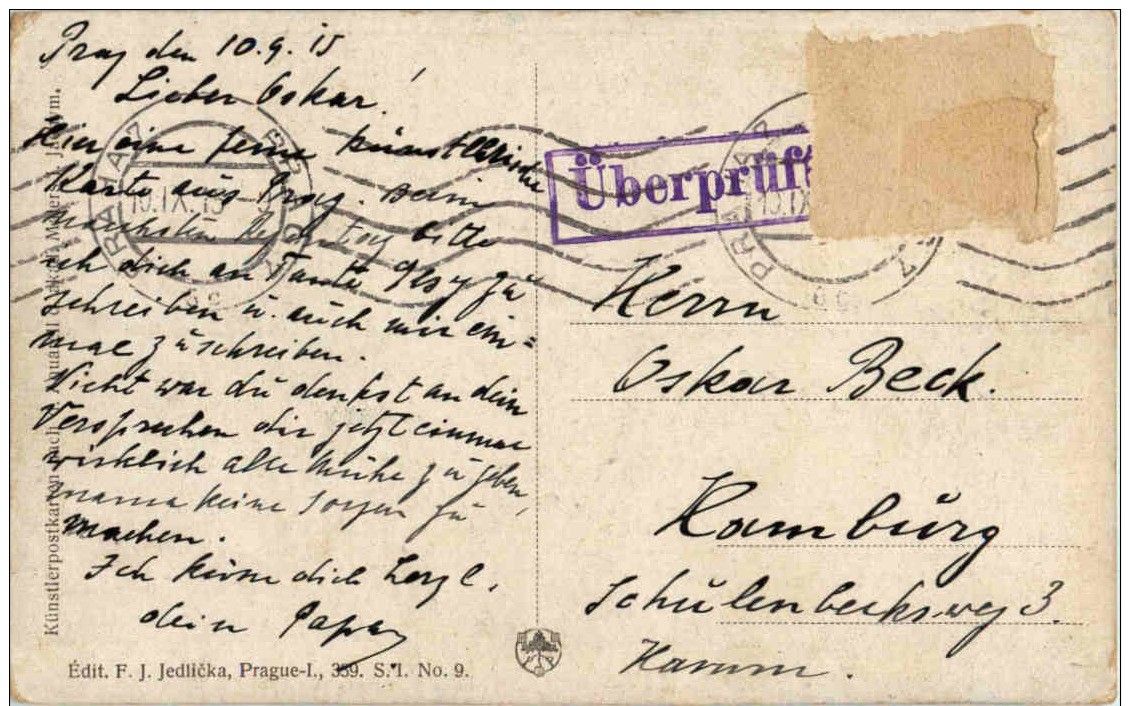 Prag den 10.9.15
Lieber Oskar!
Hier eine ferne künstlerische
Karte aus Prag. Beim
nächsten bitte
ich dich an Tante zu
schreiben u. auch mir ein=
mal zu schreiben.
Nicht war du denkst an dein
Versprechen dir jetzt einmal
wirklich alle Mühe zu geben,
mama keine Sorgen zu
machen.
Ich küsse dich herzl.
dein Papa
Künstlerpostkarten nach
Édit. F. J. Jedlička, Prague-I., 359. S. I. No. 9.
Überprüft
Herrn
Oskar Beck.
Hamburg
Schulenbecksweg 3
Hamm.